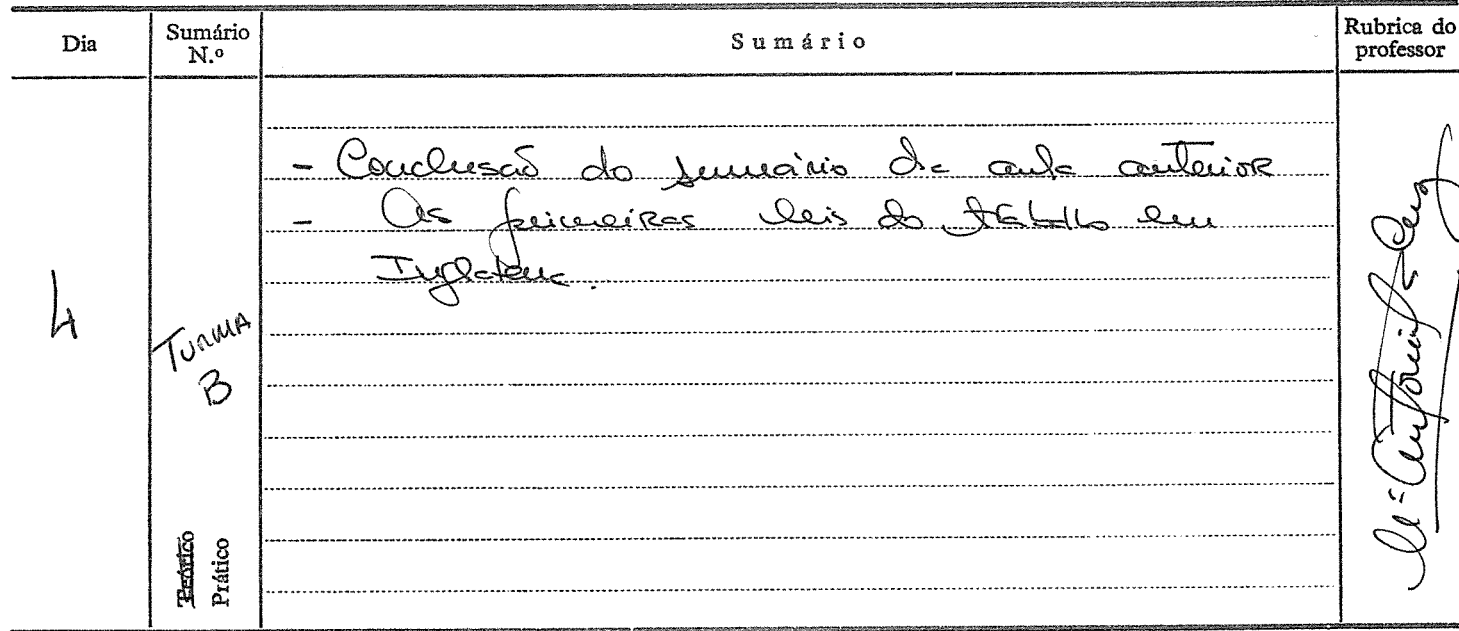 Dia
Sumário
N.º
Sumário
Rubrica do
professor
4
TURMA
B
Teórico
Prático
- Conclusão do sumário da aula anterior
- As primeiras leis do trabalho em
Inglaterra.
Mª Antónia